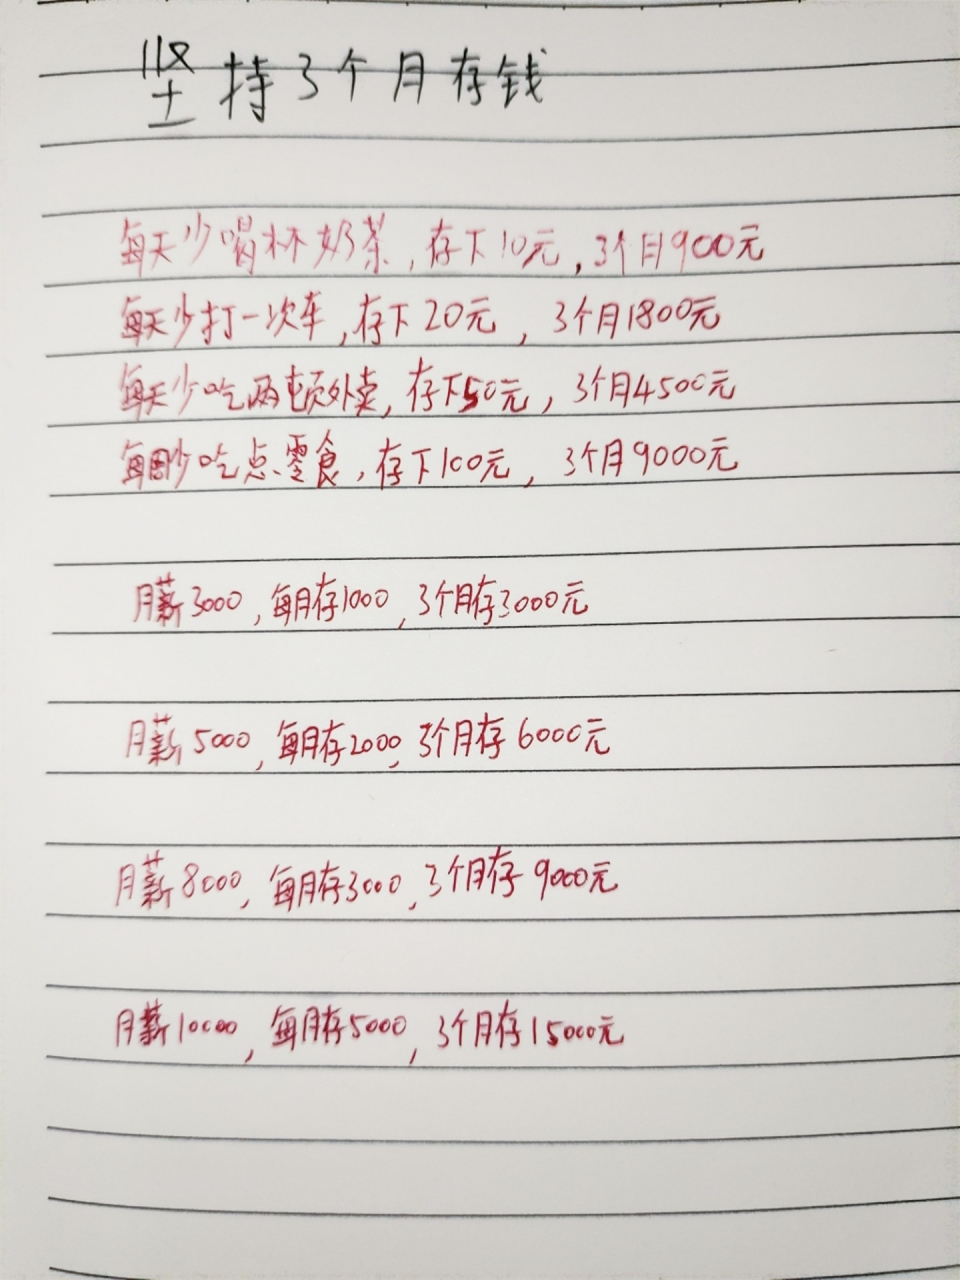 坚持3个月存钱
每天少喝杯奶茶,存下10元,3个月900元
每天少打一次车,存下20元,3个月1800元
每天少吃两顿外卖,存下50元,3个月4500元
每周少吃点零食,存下100元,3个月9000元
月薪3000,每月存1000,3个月存3000元
月薪5000,每月存2000,3个月存6000元
月薪8000,每月存3000,3个月存9000元
月薪10000,每月存5000,3个月存15000元